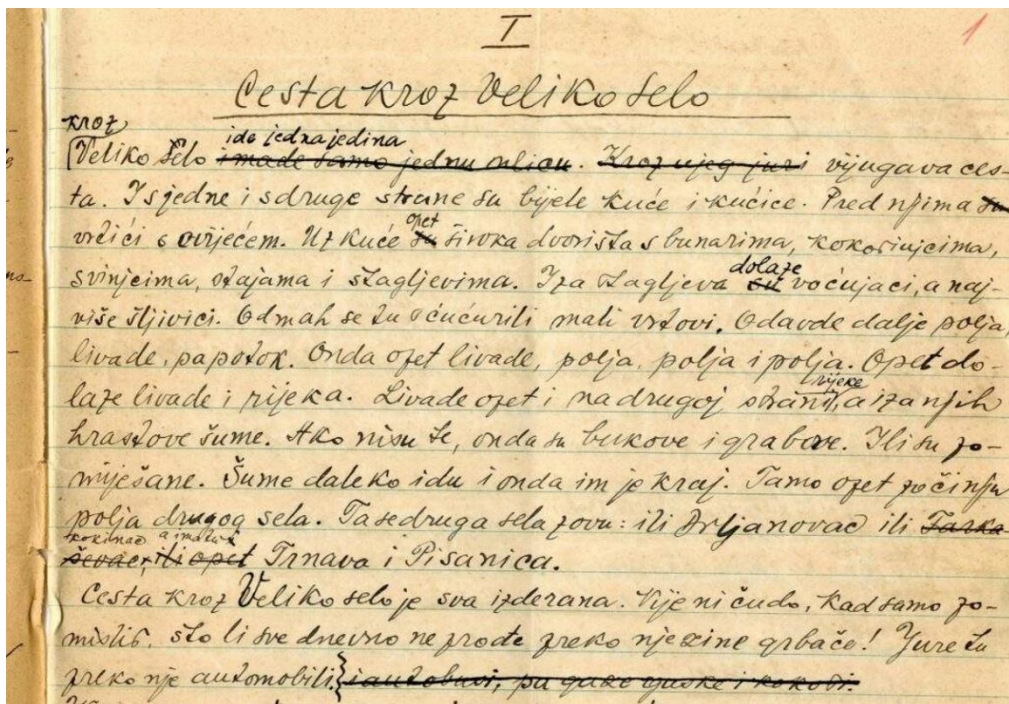 I
1
Cesta kroz Veliko selo
kroz
ide jedna jedina
Veliko selo imade samo jednu ulicu. Kroz njeg juri vijugava ces-
ta. I s jedne i s druge strane su bijele kuće i kućice. Pred njima su
opet
vrtići s cvijećem. Uz kuće su široka dvorišta s bunarima, kokošinjcima,
dolaze
svinjcima, stajama i štagljevima. Iza štagljeva su voćnjaci, a naj-
više šljivici. Odmah se tu šćućurili mali vrtovi. Odavde dalje polja,
livade, pa potok. Onda opet livade, polja, polja i polja. Opet do-
rijeke
laze livade i rijeka. Livade opet i na drugoj strani, a iza njih
hrastove šume. Ako nisu te, onda su bukove i grabove. Ili su po-
miješane. Šume daleko idu i onda im je kraj. Tamo opet počinju
polja drugog sela. Ta se druga sela zovu: ili Drljanovac ili Tarka-
a imade i
ševac, ili opet Trnava i Pisanica.
Cesta kroz Veliko selo je sva izderana. Nije ni čudo, kad samo po-
misliš, što li sve dnevno ne prođe preko njezine grbače! Jure tu
preko nje automobili i autobusi, pa gaze guske i kokoši.